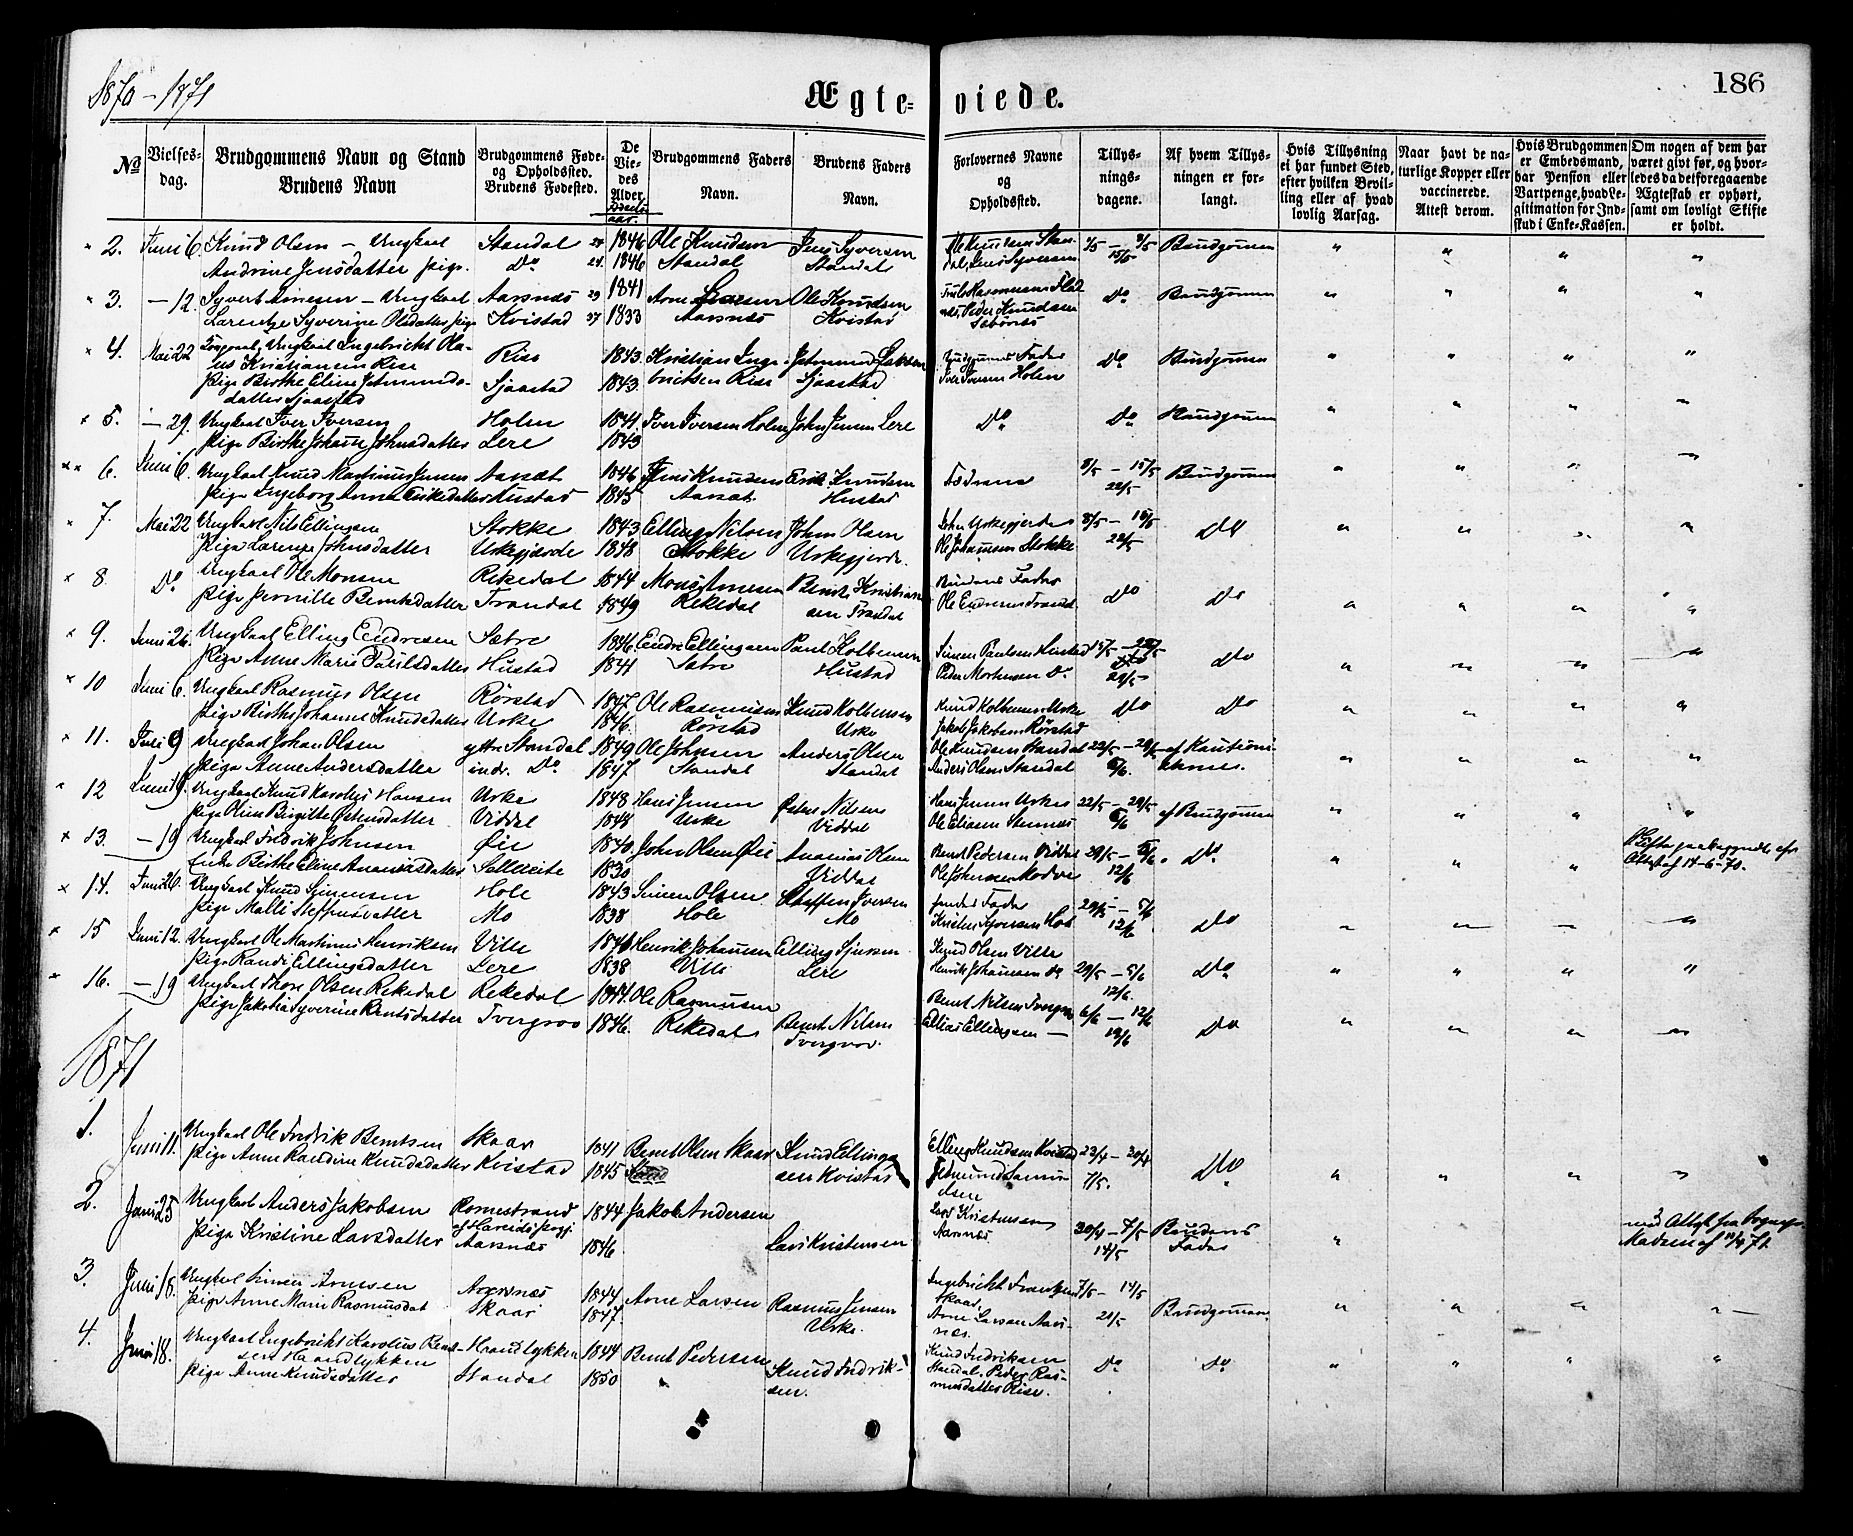 1870 - 1871
Ægte-viede.
186
No
Vielses-dag.
Brudgommens Navn og Stand
Brudens Navn
Brudgommens Føde- og Opholdssted. Brudens Fødested.
De Viedes Alder
Fødselsaar.
Brudgommens Faders Navn.
Brudens Faders Navn.
Forlovernes Navne og Opholdssted.
Tillysningsdagene.
Af hvem Tillysningen er forlangt.
Hvis Tillysning ei har fundet Sted, efter hvilken Bevilling eller af hvad lovlig Aarsag.
Naar havt de naturlige Kopper eller vaccinerede. Attest derom.
Hvis Brudgommen er Embedsmand, har Pension eller Vartpenge, hvad Legitimation for Indskud i Enke-Kassen.
Om nogen af dem har været givt før, og hvorledes da det foregaaende Ægteskab er ophørt, samt om lovligt Skifte er holdt.
2. Juni 6. Knud Olsen - Ungkarl Standal 24 1846 Ole Knudsen Jens Syversen Ole Knudsen Stan- 1/5 - 8/5 Brudgommen
Andrine Jensdatter pige. Do 24 1846 Standal Standal dal, Jens Syversen 15/5
3. - 12. Syvert Arnesen - Ungkarl Aarsnæs 29 1841 Arne Larsen Ole Knudsen Do Brudgommen
Larentze Syverine Olsdatter pige Kvistad 37 1833 Aarsnæs Kvistad Peder Knudsen Sæbønæs
4. Mai 22 Ungkarl Ingebricht Ola- Rise 1843 Kristian Inge- Jetmund Brudgommens Fader Do Brudgommen
us Kristiansen Rise
pige Birthe Eline Jetmunds- Sjaastad 1843 brictsen Rise Sjaastad Iver Iversen Holen
datter Sjaastad
5. - 29. Ungkarl Iver Iversen Holen 1841 Iver Iversen Holen John Jensen Lere Do Do Brudgommen
pige Birthe Johanne Johnsdatter Lere 1843
6. Juni 6. Ungkarl Knud Martinus Jensen Aarsæt 1846 Jens Knudsen Erik Knudsen Fædrene 8/5 - 15/5 Brudgommen
pige Ingeborg Anna Eriksdatter Hustad 1845 Aarsæt Hustad 22/5
7. Mai 22 Ungkarl Nils Ellingsen Stokke 1843 Elling Nilsen John Olsen John Urkegjerde 8/5 - 15/5 Do
pige Larenze Johnsdatter Urkegjerde 1848 Stokke Urkegjerde. Ole Johannsen Stokke 22/5
8. Do Ungkarl Ole Monsen Rekedal 1844 Mons Arnesen Bernt Kristian- Brudens Fader Do Do
pige Pernille Berntsdatter Trandal 1849 Rekedal sen Trandal Ole Endresen Trandal
9. Juni 26. Ungkarl Elling Endresen Sætre 1846 Endre Ellingsen Paul Kolbensen Simen Paulsen Hustad 15/5 - 22/5 Do
pige Anne Marie Paulsdatter Hustad 1841 Sætre Hustad Peder Mortensen Do 29/5
10 Juni 6. Ungkarl Rasmus Olsen Rørstad 1847 Ole Rasmusen Knud Kolbensen Knud Kolbensen Urke Do Do
pige Birthe Johanne Knudsdatter Urke 1846. Rørstad Urke Jakob Jakobsen Rørstad
11. Juni 9 Ungkarl Johan Olsen yttre Standal 1849 Ole Johnsen Anders Olsen Ole Knudsen Standal 22/5 - 29/5 af Kautioni-
pige Anne Andersdatter indr. Do 1847 Standal Standal Anders Olsen Standal 6/6.
12 Juni 19. Ungkarl Knud Karolus Hansen Urke 1848 Hans Jensen Nilsen Hans Jensen Urke 22/5 - 29/5 af Brudgommen
pige Oline Birgitte Viddal 1848 Urke Viddal Ole Eliasen 6/6
13. - 19 Ungkarl Fredrik Johnsen Øie 1840 John Olsen Øie Ananias Olsen Bernt Pedersen Viddal 29/5 - 5/6. Do.
Enke Birthe Eline Ananiasdatter 1830 Viddal 12/6
Attest af 14-6-70.
14. Juni 26. Ungkarl Knud Simensen Hole 1843 Simen Olsen Steffen Iversen Fader 29/5 - 5/6 Do
pige Malli Steffensdatter Mo 1838 Hole Mo Kristen Syversen 12/6
15 Juni 12. Ungkarl Ole Martinus Henriksen Ville 1846 Henrik Johansen Elling Sjursen Knud Olsen Ville
pige Randi Ellingsdatter Lere 1838 Ville Lere Henrik Johansen do 29/5 - 5/6 Do
12/6.
16. - 19 Ungkarl Thore Olsen Rekedal Rekedal 1844 Ole Rasmusen Bernt Nilsen 6/6 - 12/6
pige Jakobia Syverine Berntsdatter Tvergrov 1846. Rekedal Bernt Nilsen Elias Ellingsen — 19/6 Do
Tvergrov.
1871
1. Juni 11. Ungkarl Ole Fredrik Berntsen Skaar 1841 Bernt Olsen Skaar Knud Ellings- Elling Knudsen Kvistad 23/4 - 30/4 Do
pige Anne Randine Knudsdatter Kvistad 1845 sen Kvistad Jetmund 7/5.
2. Juni 25 Ungkarl Anders Jakobsen Romestrand 1844 Jakob Andersen Lars Kristensen 30/4 - 7/5 Brudens
af Hareids pregj
pige Kristine Larsdatter Aarsnæs 1846 Lars Kristensen Aarsnæs 14/5 Fader
med Attest fra
Madsen af 18/4 71.
3. Juni 18. Ungkarl Simen Arnesen Aarsnæs 1844 Arne Larsen Rasmus Jensen Ingebricht 7/5 - 14/5
pige Anne Marie Rasmusdat Skaar 1847. Urke. Skaar, Arne Larsen Aars- 21/5 Brudgommen
næs.
4. Juni 18. Ungkarl Ingebricht Karolius Bernt- Haandlykken 1844 Bernt Pedersen Knud Fredrik- Knud Fredriksen Do Do
sen Haandlykken
pige Anne Knudsdatter Standal 1850 sen. Standal, Peder Ras-
Rise.